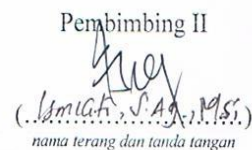 Pembimbing II
(Ismiati, S.Ag., M.Si)
nama terang dan tanda tangan